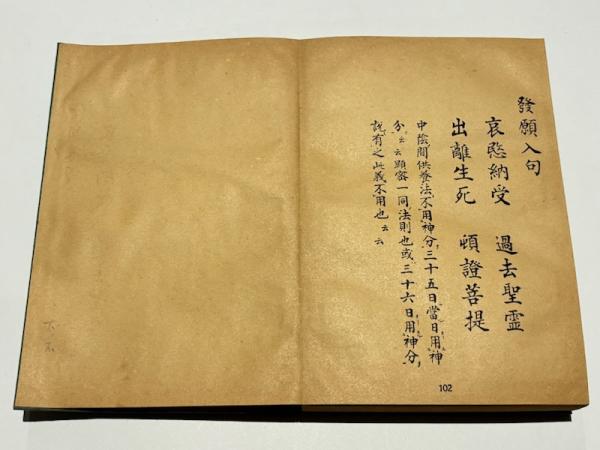 發願入句
哀愍納受　過去聖霊
出離生死　頓證菩提
中陰間供養法不用神分三十五日當日用神
分云云顕密一同法則也或三十六日用神分
説有之此義不用也云云
102